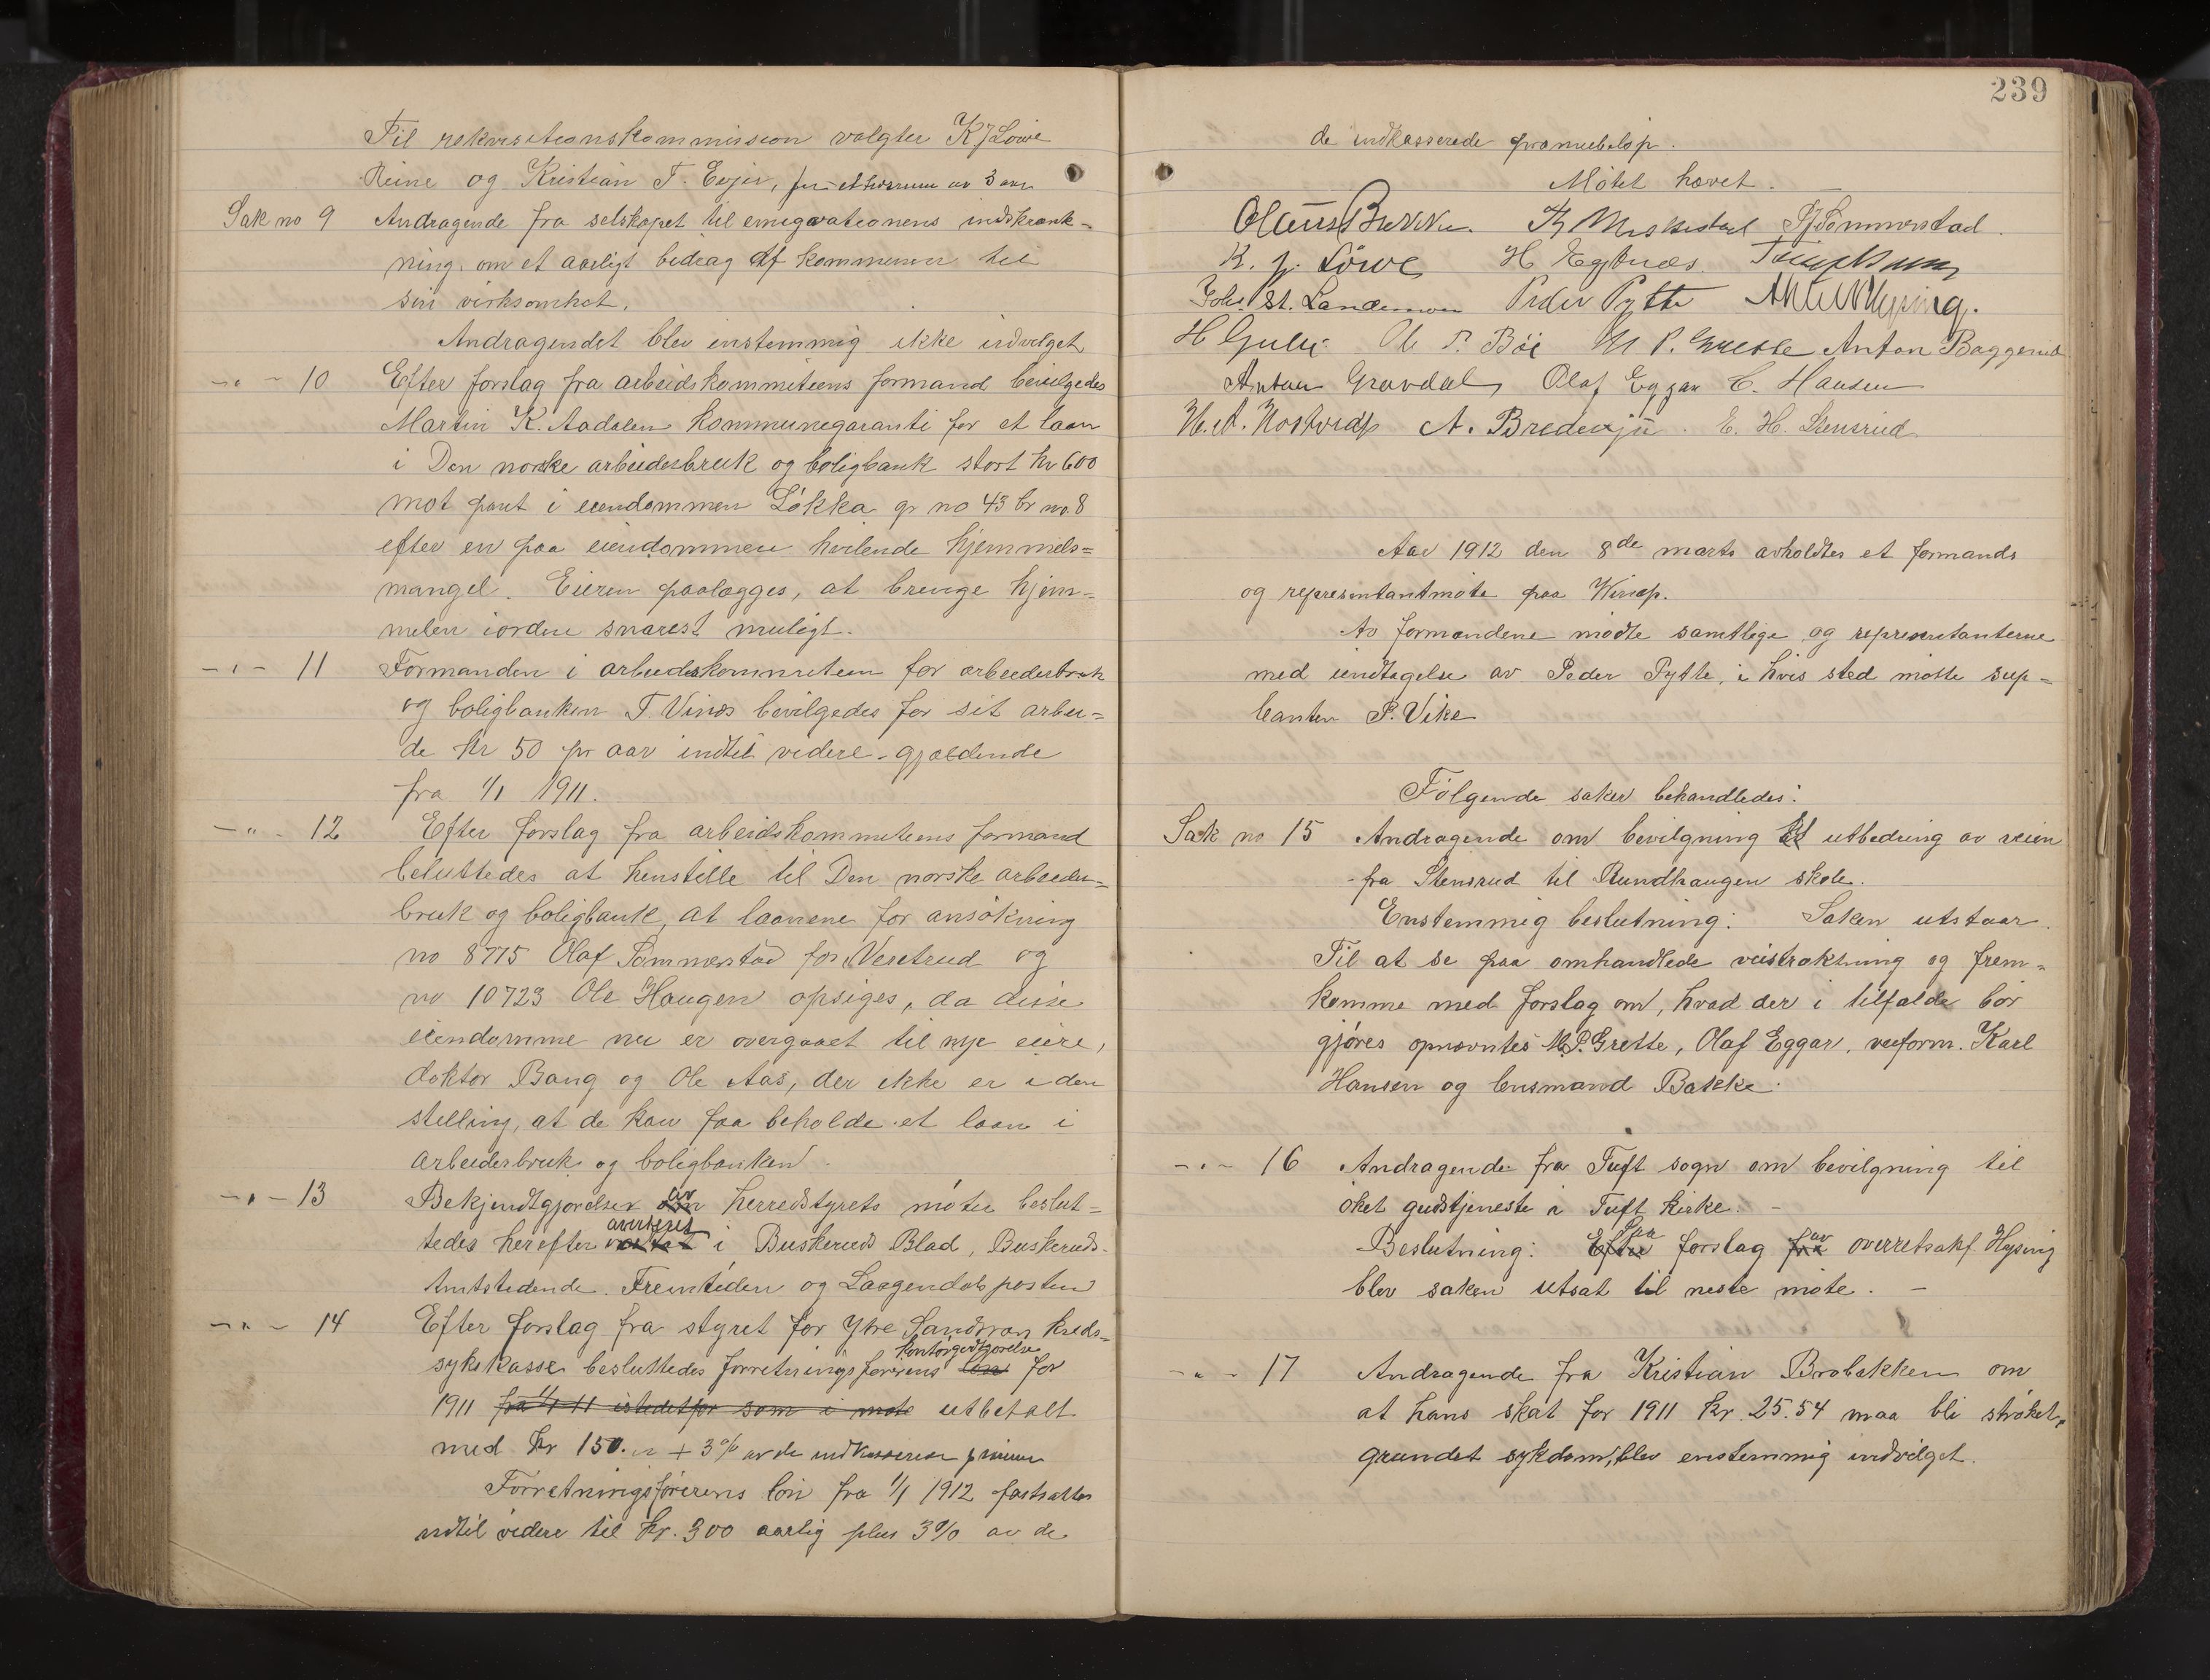 Til rekvisitionskommission valgtes K J Löwe
Reine og Kristian T. Evju, for et tidsrum av 3 aar
Sak no 9 Andragende fra selskapet til emigrationens indskrænk=
ning om et aarligt bidrag af kommunen til
sin virksomhet.
Andragendet blev enstemmig ikke indvilget
—"— 10 Efter forslag fra arbeidskommiteens formand bevilgedes
Martin K. Aadalen kommunegaranti for et laan
i Den norske arbeiderbruk og boligbank stort kr 600
mot pant i eiendommen Løkka gr no 43 br no. 8
efter en paa eiendommen hvilende hjemmels=
mangel. Eieren paalægges, at bringe hjem=
melen iorden snarest muligt.
—"— 11 Formanden i arbeidskommiteen for arbeiderbruk
og boligbanken T. Vinæs bevilgedes for sit arbei=
de kr 50 pr aar indtil videre - gjældende
fra 1/1 1911.
—"— 12 Efter forslag fra arbeidskommiteens formand
besluttedes at henstille til Den norske arbeider=
bruk og boligbank, at laanene for ansøkning
no 8775 Olaf Sømmerstad for Veretrud og
no 10723 Ole Haugen opsiges, da disse
eiendomme nu er overgaaet til nye eiere,
doktor Bang og Ole Aas, der ikke er i den
stilling, at de kan faa beholde et laan i
arbeiderbruk og boligbanken.
—"— 13 Bekjendtgjørelser om av herredstyrets møter beslut=
tedes herefter averteret i Buskeruds Blad, Buskeruds
Amtstidende. Fremtiden og Laagendalsposten
—"— 14 Efter forslag fra styret for Ytre Sandsvær kreds=
sykekasse besluttedes forretningsførerens løn kontorgodtgjørelse for
1911 fra 1/1 11 istedetfor som i møte utbetalt
med kr 150. + 3% av de indkasserede premier
Forretningsførerens løn fra 1/1 1912 fastsattes
indtil videre til kr. 300 aarlig plus 3% av de
239
de indkasserede præmiebeløp.
Møtet hævet.
Olaus Bakke. Sømmerstad
K. J. Löwe H Egtnæs.
Johs. St. Landemoen Peder Pytte Hysing.
Ole P. Bøe M P. Grette Anton Baggerud
Anton Gravdal, Olaf Eggar C. Hansen
A. Bredevju. E. H. Stensrud
Aar 1912 den 8de marts avholdtes et formands
og representantmøte paa Winop.
Av formændene møtte samtlige og representanterne
med undtagelse av Peder Pytte, i hvis sted møtte sup=
leanten P. Vike
Følgende saker behandledes:
Sak no 15 Andragende om bevilgning til utbedring av veien
fra Stensrud til Rundhaugen skole.
Enstemmig beslutning: Saken utstaar.
Til at se paa omhandlede veistrækning og frem=
komme med forslag om, hvad der i tilfælde bør
gjøres opnævntes M.P. Grette, Olaf Eggar, veiform. Karl
Hansen og lensmand Bakke.
—"— 16 Andragende fra Tuft sogn om bevilgning til
øket gudstjeneste i Tuft kirke. —
Beslutning: Efter Paa forslag fra av overretsakf. Hysing
blev saken utsat til neste møte. —
—"— 17 Andragende fra Kristian Brobakken om
at hans skat for 1911 kr. 25.54 maa bli strøket,
grundet sykdom, blev enstemmig indvilget.